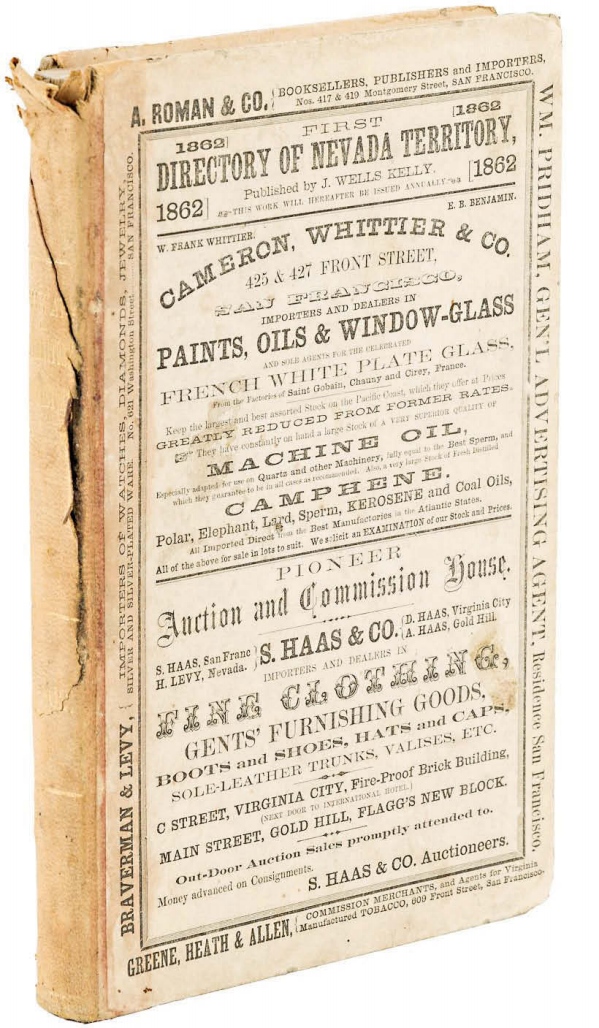 A. ROMAN & CO. { BOOKSELLERS, PUBLISHERS and IMPORTERS,
Nos. 417 & 419 Montgomery Street, SAN FRANCISCO.
1862 FIRST 1862
DIRECTORY OF NEVADA TERRITORY,
Published by J. WELLS KELLY.
1862 THIS WORK WILL HEREAFTER BE ISSUED ANNUALLY. 1862
W. FRANK WHITTIER. E. B. BENJAMIN.
CAMERON, WHITTIER & CO.
425 & 427 FRONT STREET,
SAN FRANCISCO,
IMPORTERS AND DEALERS IN
PAINTS, OILS & WINDOW-GLASS
AND SOLE AGENTS FOR THE CELEBRATED
FRENCH WHITE PLATE GLASS,
From the Factories of Saint Gobain, Chauny and Cirey, France.
Keep the largest and best assorted Stock on the Pacific Coast, which they offer at Prices
GREATLY REDUCED FROM FORMER RATES.
☞ They have constantly on hand a large Stock of A VERY SUPERIOR QUALITY OF
MACHINE OIL,
Especially adapted for use on Quartz and other Machinery, fully equal to the Best Sperm, and
which they guarantee to be in all cases as recommended. Also, a very large Stock of Fresh Distilled
CAMPHENE.
Polar, Elephant, Lard, Sperm, KEROSENE and Coal Oils,
All Imported Direct from the Best Manufactories in the Atlantic States.
All of the above for sale in lots to suit. We solicit an EXAMINATION of our Stock and Prices.
PIONEER
Auction and Commission House.
S. HAAS, San Franc
H. LEVY, Nevada. } S. HAAS & CO. { D. HAAS, Virginia City
A. HAAS, Gold Hill.
IMPORTERS AND DEALERS IN
FINE CLOTHING,
GENTS' FURNISHING GOODS.
BOOTS and SHOES, HATS and CAPS,
SOLE-LEATHER TRUNKS, VALISES, ETC.
C STREET, VIRGINIA CITY, Fire-Proof Brick Building,
(NEXT DOOR TO INTERNATIONAL HOTEL.)
MAIN STREET, GOLD HILL, FLAGG'S NEW BLOCK.
Out-Door Auction Sales promptly attended to.
Money advanced on Consignments.
S. HAAS & CO. Auctioneers.
GREENE, HEATH & ALLEN, { COMMISSION MERCHANTS, and Agents for Virginia
Manufactured TOBACCO, 609 Front Street, San Francisco.
BRAVERMAN & LEVY, { IMPORTERS OF WATCHES, DIAMONDS, JEWELRY,
SILVER AND SILVER-PLATED WARE. No. 621 Washington Street, SAN FRANCISCO.
WM. PRIDHAM, GEN'L ADVERTISING AGENT. Residence San Francisco.